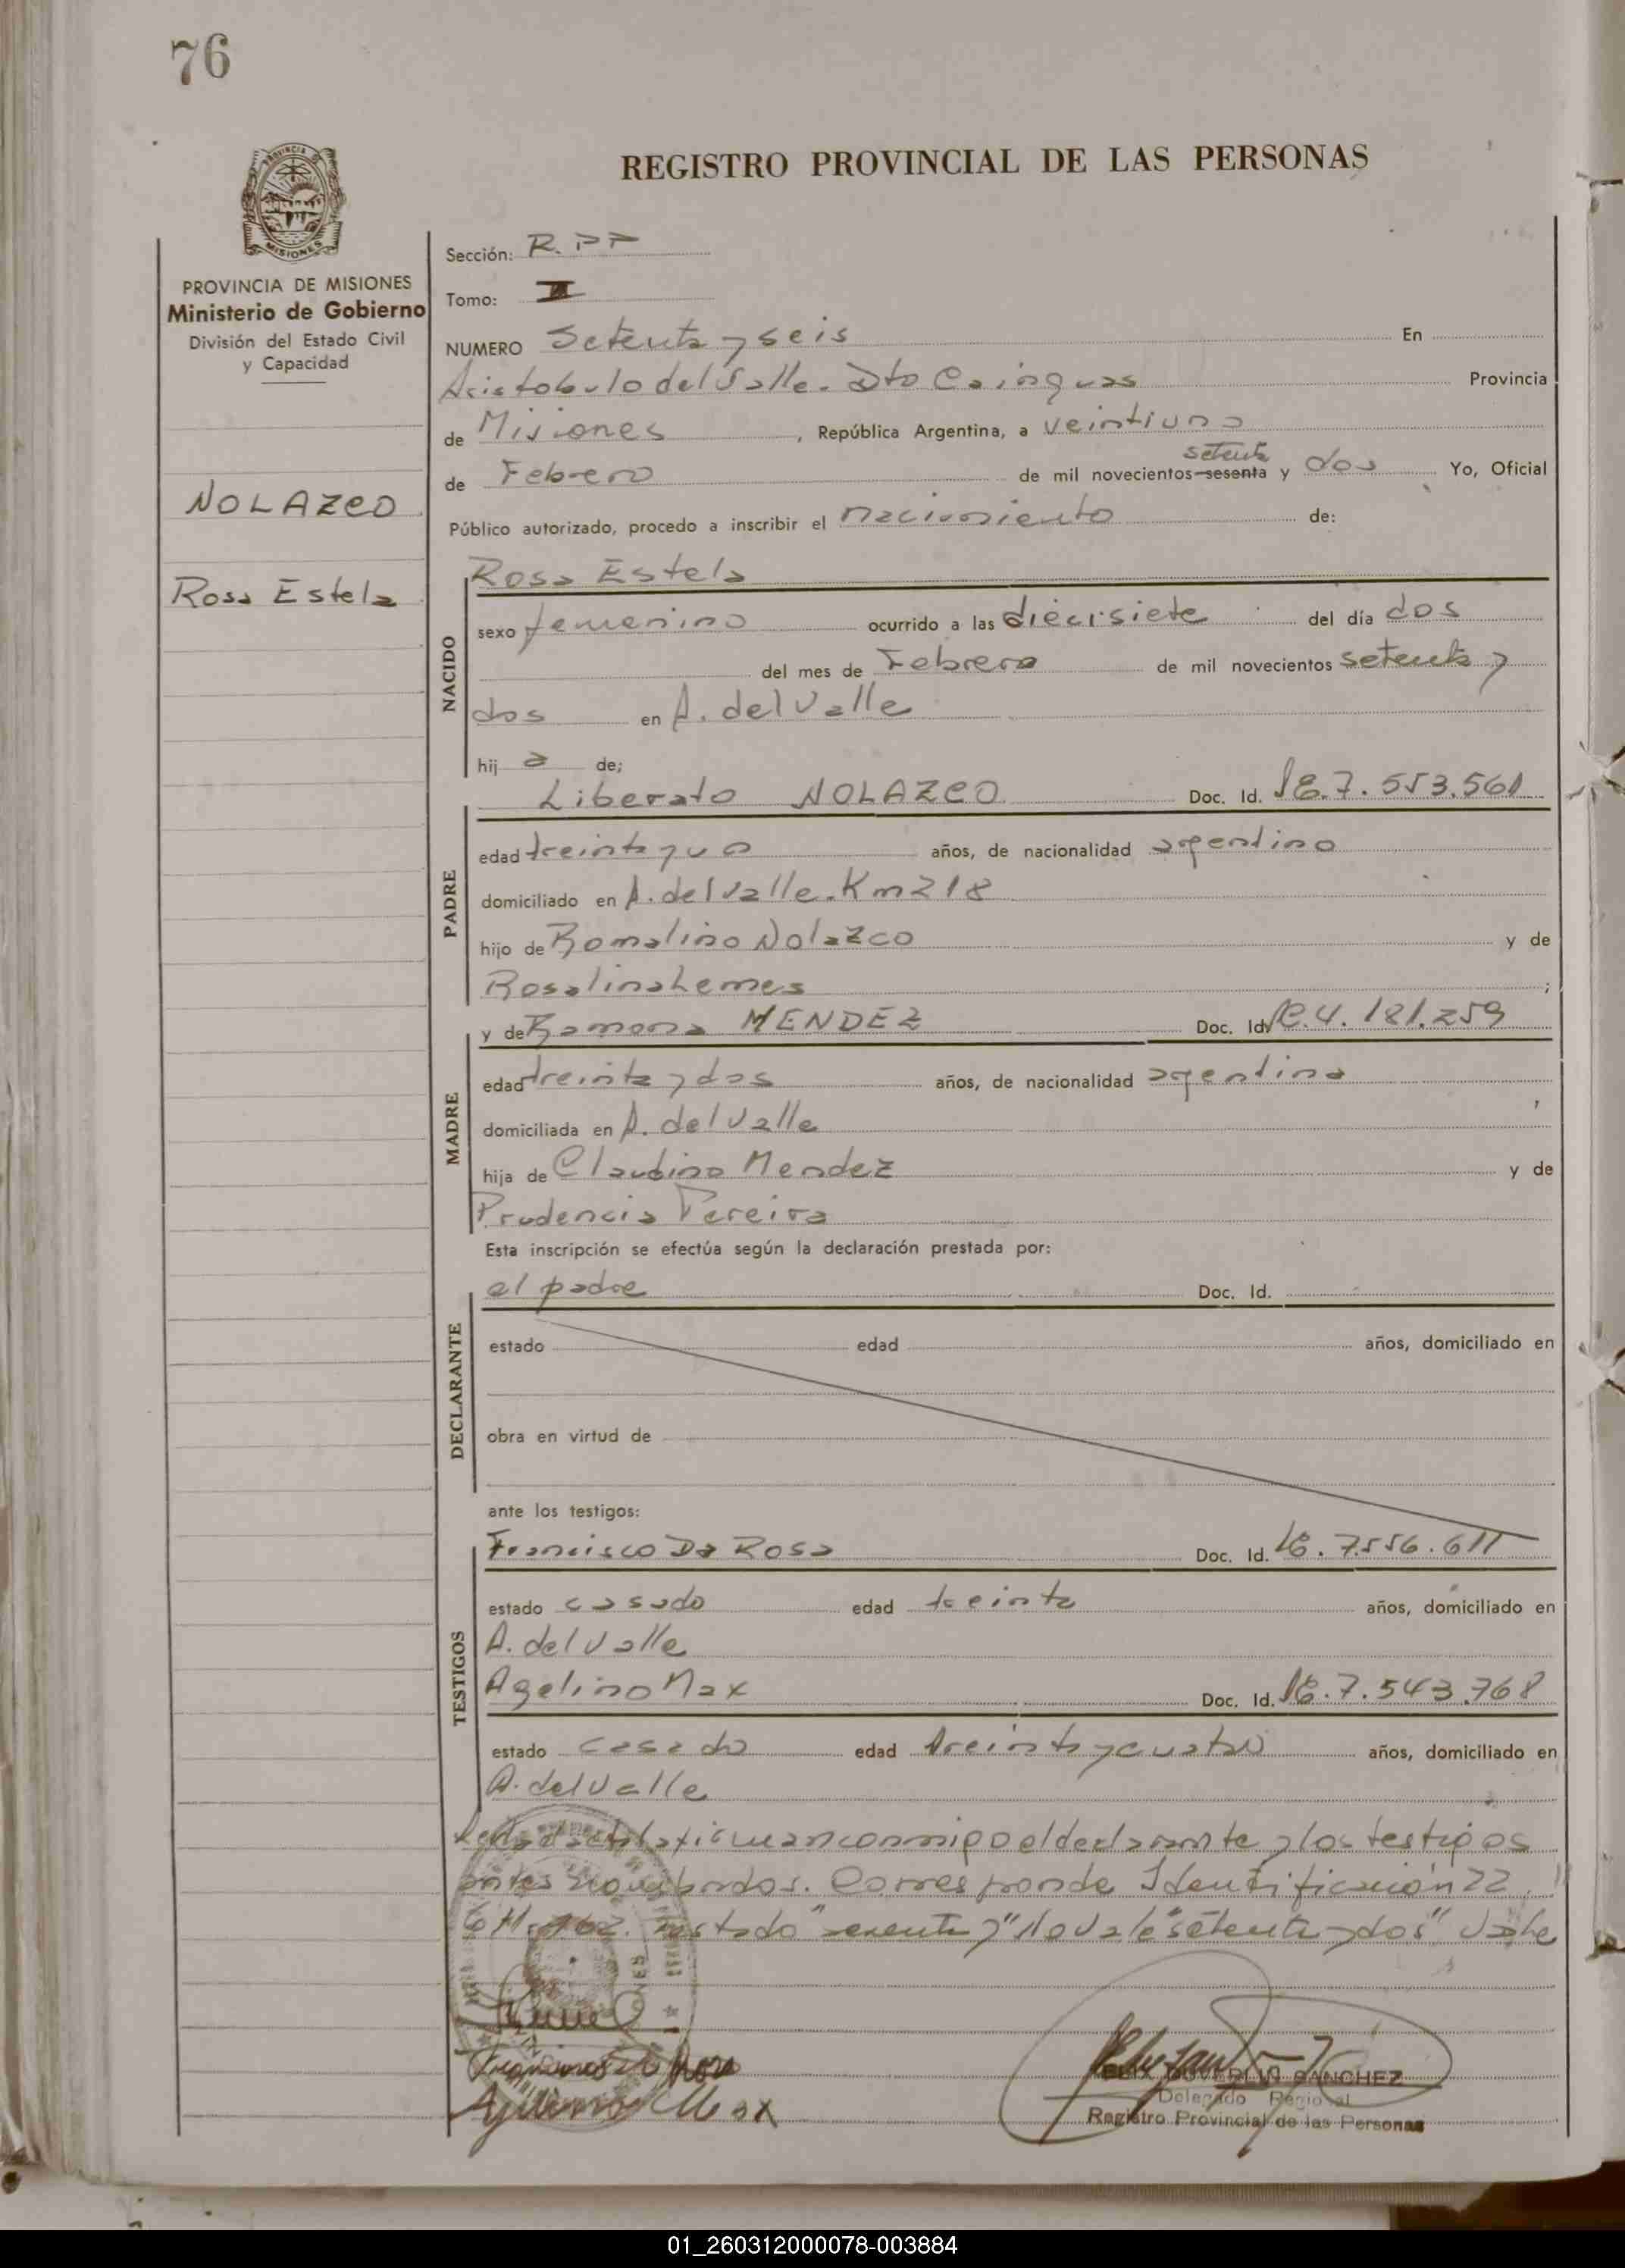 76
PROVINCIA DE MISIONES
Ministerio de Gobierno
División del Estado Civil
y Capacidad
NOLAZCO
Rosa Estela
REGISTRO PROVINCIAL DE LAS PERSONAS
Sección: R.PP
Tomo: II
NUMERO Setenta y seis En
Aristobulo del Valle. Dto Cainguas Provincia
de Misiones, República Argentina, a veintiuno
setenta
de Febrero de mil novecientos sesenta y dos Yo, Oficial
Público autorizado, procedo a inscribir el nacimiento de:
Rosa Estela
NACIDO
sexo femenino ocurrido a las diecisiete del día dos
del mes de Febrero de mil novecientos setenta y
dos en A. del Valle
hij a de;
Liberato NOLAZCO Doc. Id. 7.553.561
PADRE
edad treinta y un años, de nacionalidad argentino
domiciliado en A. del Valle. Km 218
hijo de Romalino Nolazco y de
Rosalina Lemes ;
y de Ramona MENDEZ Doc. Id. 4.181.259
MADRE
edad treinta y dos años, de nacionalidad argentina
domiciliada en A. del Valle
hija de Claudino Mendez y de
Prudencia Pereira
Esta inscripción se efectúa según la declaración prestada por:
el padre Doc. Id.
DECLARANTE
estado edad años, domiciliado en
obra en virtud de
ante los testigos:
Francisco Da Rosa Doc. Id. 7.556.611
TESTIGOS
estado casado edad treinta años, domiciliado en
A. del Valle
Agelino Max Doc. Id. 7.543.768
estado casado edad treinta y cuatro años, domiciliado en
A. del Valle
Leida el acta la firman conmigo el declarante y los testigos
antes nombrados. Corresponde Identificación 22.
testado "sesenta y" No vale "setenta y dos" Vale
Francisco Da Rosa
Agelino Max
FELIX SANCHEZ
Delegado Regional
Registro Provincial de las Personas
01_260312000078-003884